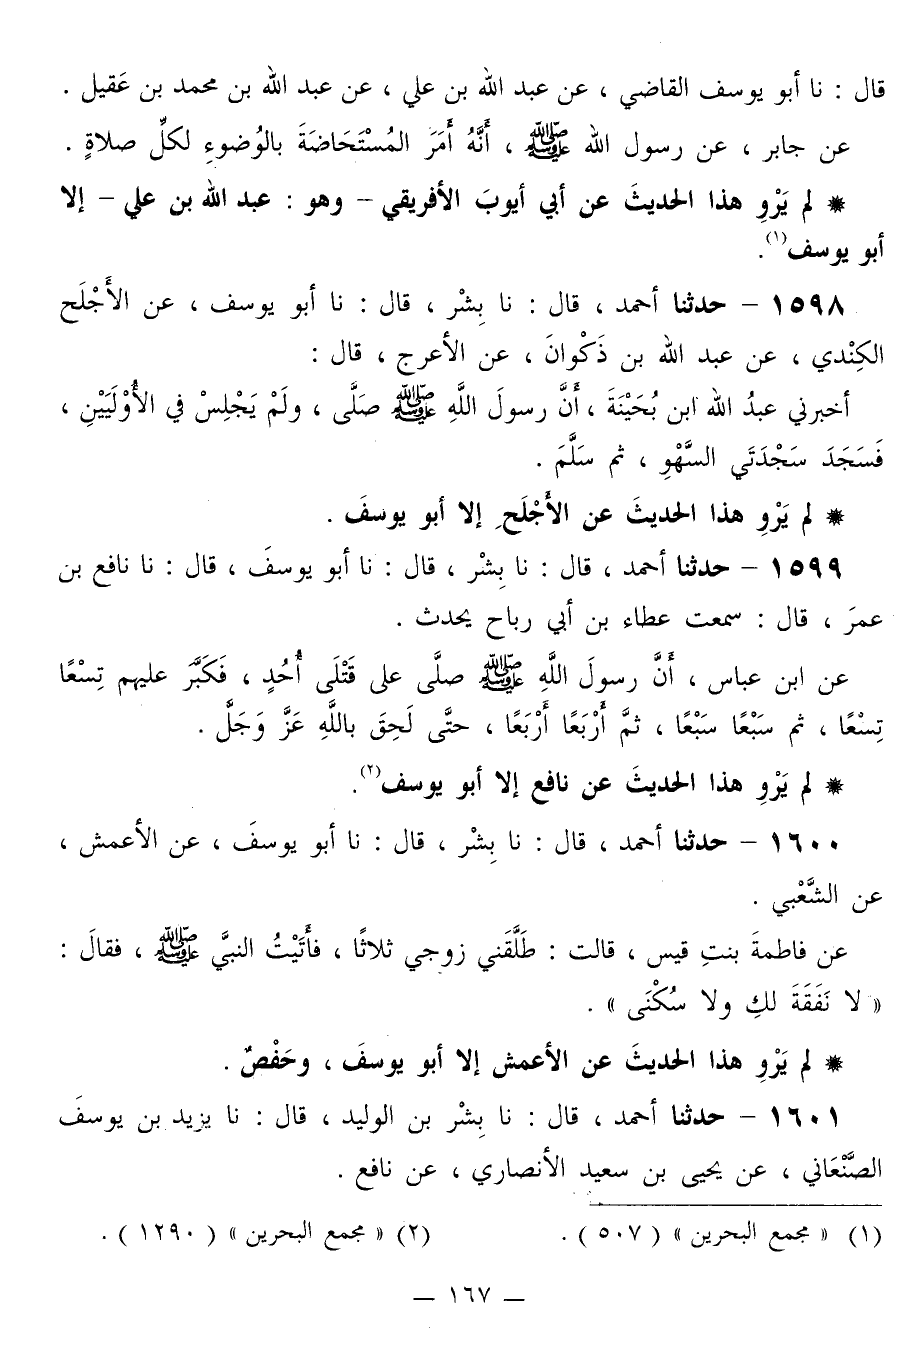 قال : نا أبو يوسف القاضي ، عن عبد الله بن علي ، عن عبد الله بن محمد بن عَقيل .
عن جابر ، عن رسول الله ﷺ ، أَنَّهُ أَمَرَ المُسْتَحَاضَةَ بالوُضوءِ لكلِّ صلاةٍ .
* لم يَرْوِ هذا الحديثَ عن أبي أيوبَ الأفريقي – وهو : عبد الله بن علي – إلا
أبو يوسف(١).
١٥٩٨ – حدثنا أحمد ، قال : نا بِشْر ، قال : نا أبو يوسف ، عن الأَجْلَح
الكِنْدي ، عن عبد الله بن ذَكْوانَ ، عن الأعرج ، قال :
أخبرني عبدُ الله ابن بُحَيْنَةَ ، أَنَّ رسولَ اللَّهِ ﷺ صَلَّى ، ولَمْ يَجْلِسْ في الأُوْلَيَيْنِ ،
فَسَجَدَ سَجْدَتَي السَّهْوِ ، ثم سَلَّمَ .
* لم يَرْوِ هذا الحديثَ عن الأَجْلَحِ إلا أبو يوسفَ .
١٥٩٩ – حدثنا أحمد ، قال : نا بِشْر ، قال : نا أبو يوسفَ ، قال : نا نافع بن
عمرَ ، قال : سمعت عطاء بن أبي رباح يحدث .
عن ابن عباس ، أَنَّ رسولَ اللَّهِ ﷺ صلَّى على قَتْلَى أُحُدٍ ، فَكَبَّرَ عليهم تِسْعًا
تِسْعًا ، ثم سَبْعًا سَبْعًا ، ثمَّ أَرْبَعًا أَرْبَعًا ، حتَّى لَحِقَ باللَّهِ عَزَّ وَجَلَّ .
* لم يَرْوِ هذا الحديثَ عن نافع إلا أبو يوسف(٢).
١٦٠٠ – حدثنا أحمد ، قال : نا بِشْر ، قال : نا أبو يوسفَ ، عن الأعمش ،
عن الشَّعْبي .
عن فاطمةَ بنتِ قيس ، قالت : طَلَّقَني زوجي ثلاثًا ، فأَتَيْتُ النبيَّ ﷺ ، فقالَ :
« لا نَفَقَةَ لكِ ولا سُكْنَى » .
* لم يَرْوِ هذا الحديثَ عن الأعمش إلا أبو يوسفَ ، وحَفْصٌ .
١٦٠١ – حدثنا أحمد ، قال : نا بِشْر بن الوليد ، قال : نا يزيد بن يوسفَ
الصَّنْعَاني ، عن يحيى بن سعيد الأنصاري ، عن نافع .
(١) « مجمع البحرين » ( ٥٠٧ ) . (٢) « مجمع البحرين » ( ١٢٩٠ ) .
— ١٦٧ —